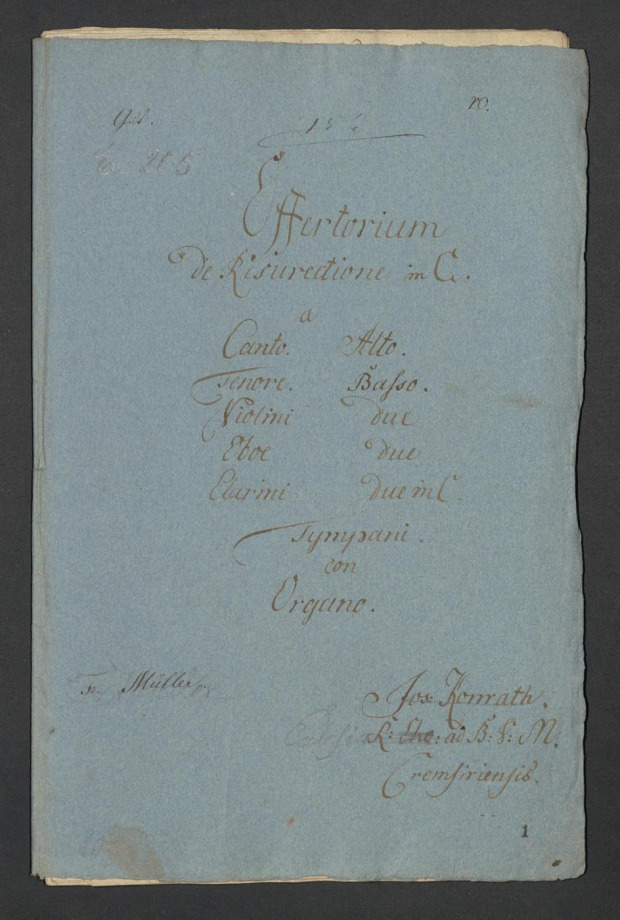 10.
15
205
Offertorium
De Risurectione in C.
a
Canto. Alto.
Tenore. Basso.
Violini due
Oboe due
Clarini due in C.
Tympani.
con
Organo.
Müller
Jos: Konrath.
R: ad B: V: M.
Cremsiriensis.
1